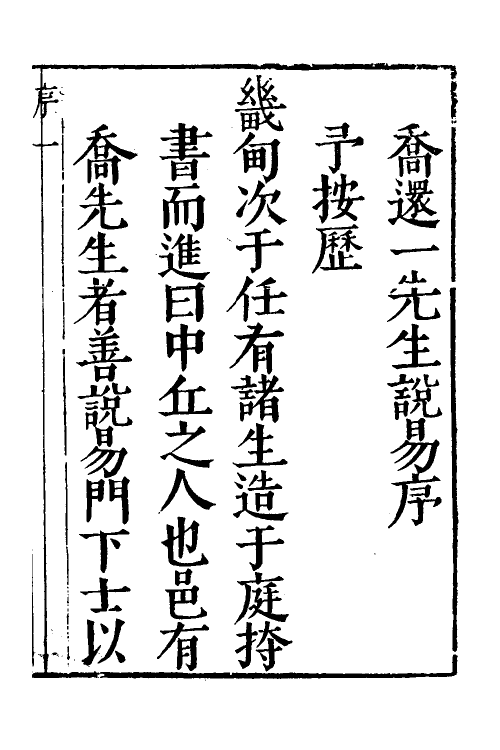 喬還一先生說易序
予按歷
畿甸次于任有諸生造于庭持
書而進曰中丘之人也邑有
喬先生者善說易門下士以
序一